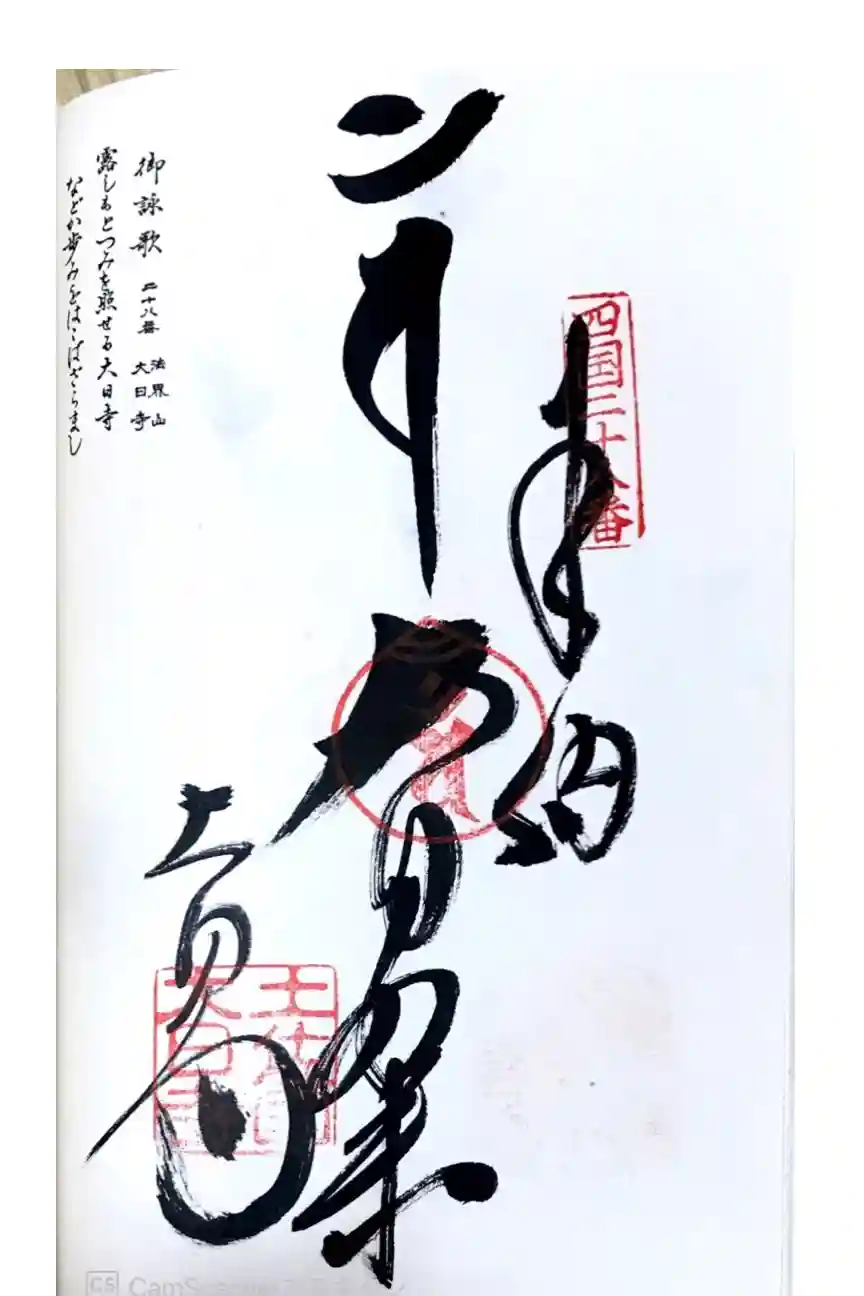 四国二十八番
奉納
大日如来
大日寺
御詠歌 二十八番 法界山 大日寺
露しもとつみを照せる大日寺
などか歩みをはこばざらまし
CS CamScanner